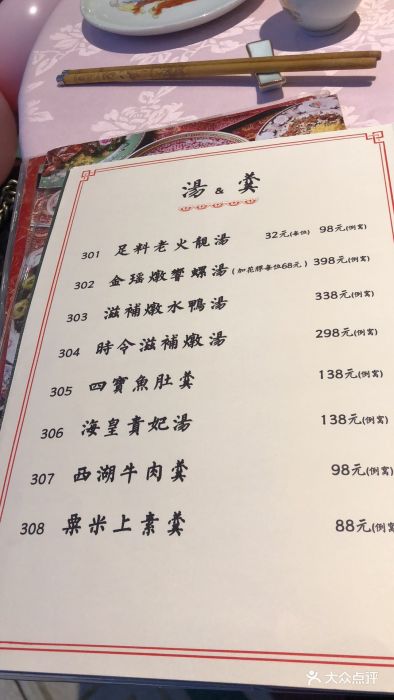 湯 & 羹
301 足料老火靚湯 32元(每位) 98元(例窩)
302 金瑤燉響螺湯(加花膠每位68元) 398元(例窩)
303 滋補燉水鴨湯 338元(例窩)
304 時令滋補燉湯 298元(例窩)
305 四寶魚肚羹 138元(例窩)
306 海皇貴妃湯 138元(例窩)
307 西湖牛肉羹 98元(例窩)
308 粟米上素羹 88元(例窩
大众点评